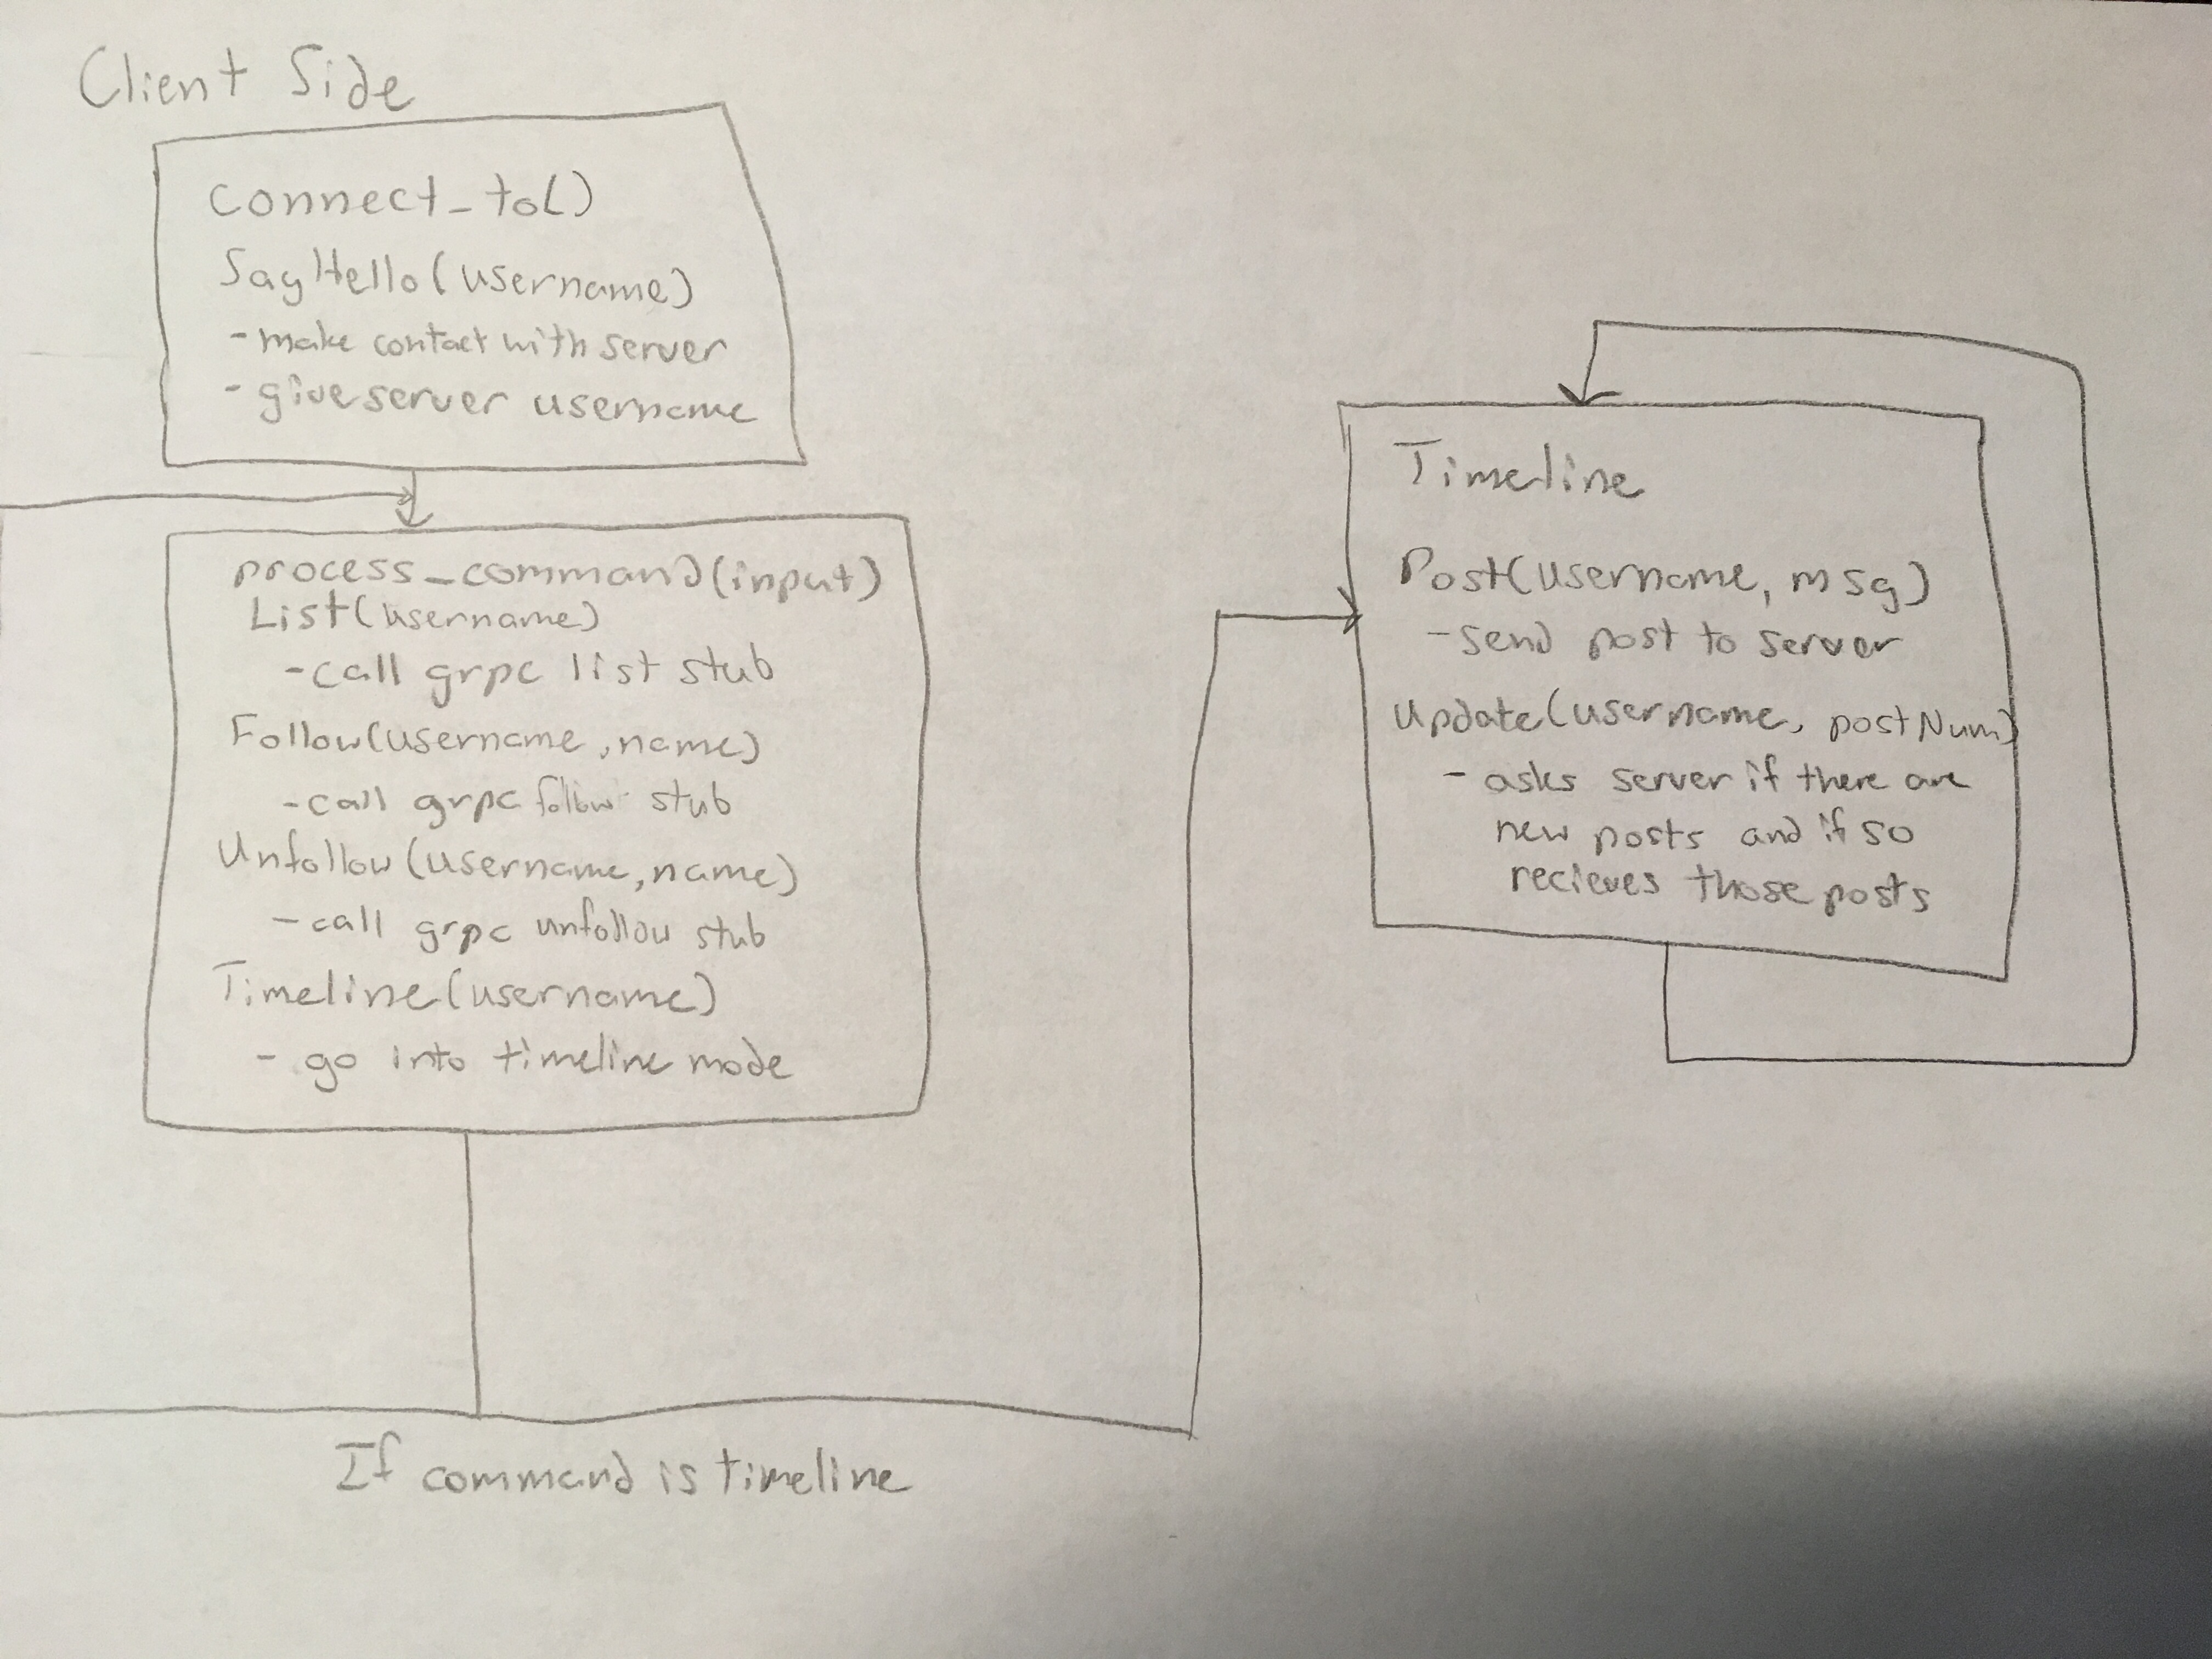 Client Side
connect_to()
SayHello(username)
- make contact with server
- give server username
process_command(input)
List(username)
- call grpc list stub
Follow(username, name)
- call grpc follow stub
Unfollow(username, name)
- call grpc unfollow stub
Timeline(username)
- go into timeline mode
If command is timeline
Timeline
Post(username, msg)
- send post to server
Update(username, postNum)
- asks server if there are
new posts and if so
recieves those posts